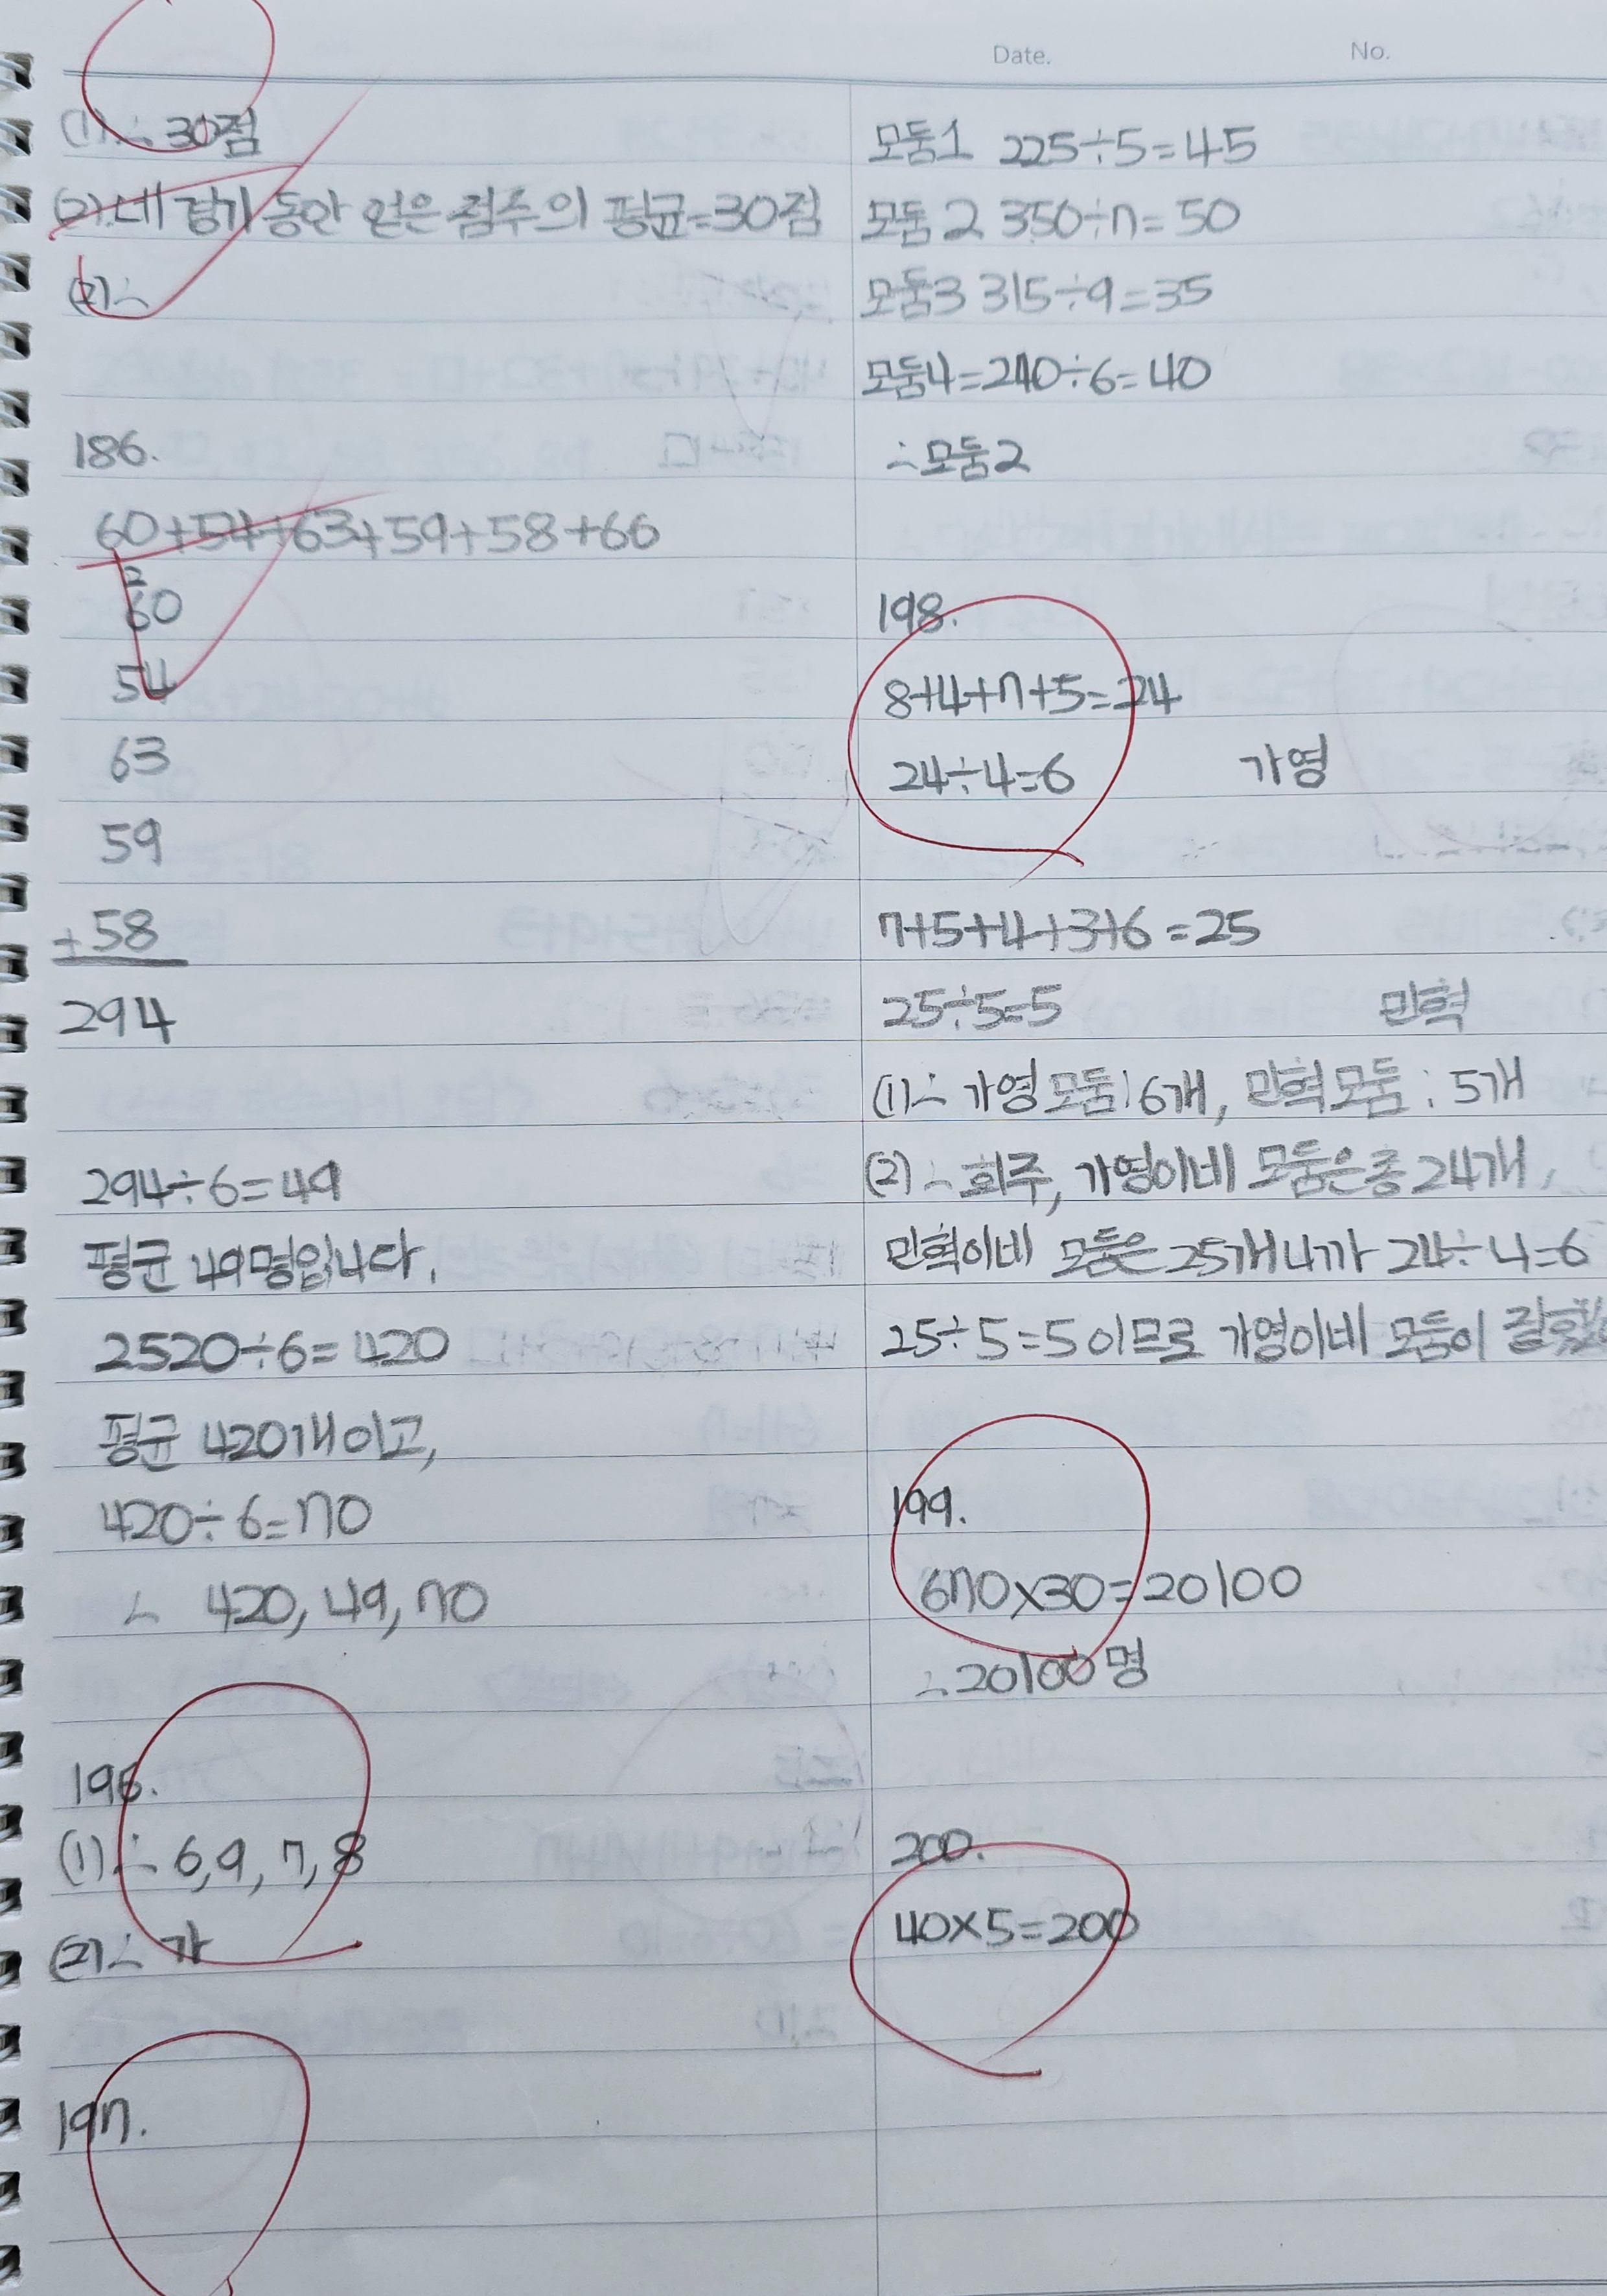 Date.
No.
(1)∴ 30점
(2). 네 경기 동안 얻은 점수의 평균=30점
(2)∴
186.
60+54+63+59+58+66
2
60
54
63
59
+58
294
294÷6=49
평균 49명입니다.
2520÷6=420
평균 420개이고,
420÷6=70
∴ 420, 49, 70
196.
(1)∴ 6, 9, 7, 8
(2)∴ 가
197.
모둠1 225÷5=45
모둠2 350÷7=50
모둠3 315÷9=35
모둠4=240÷6=40
∴모둠2
198.
8+4+7+5=24
24÷4=6 가영
7+5+4+3+6=25
25÷5=5 민혁
(1)∴ 가영모둠:6개, 민혁모둠: 5개
(2)∴ 희주, 가영이네 모둠은 총 24개,
민혁이네 모둠은 25개니까 24÷4=6
25÷5=5 이므로 가영이네 모둠이
199.
670×30=20100
∴20100명
200.
40×5=200